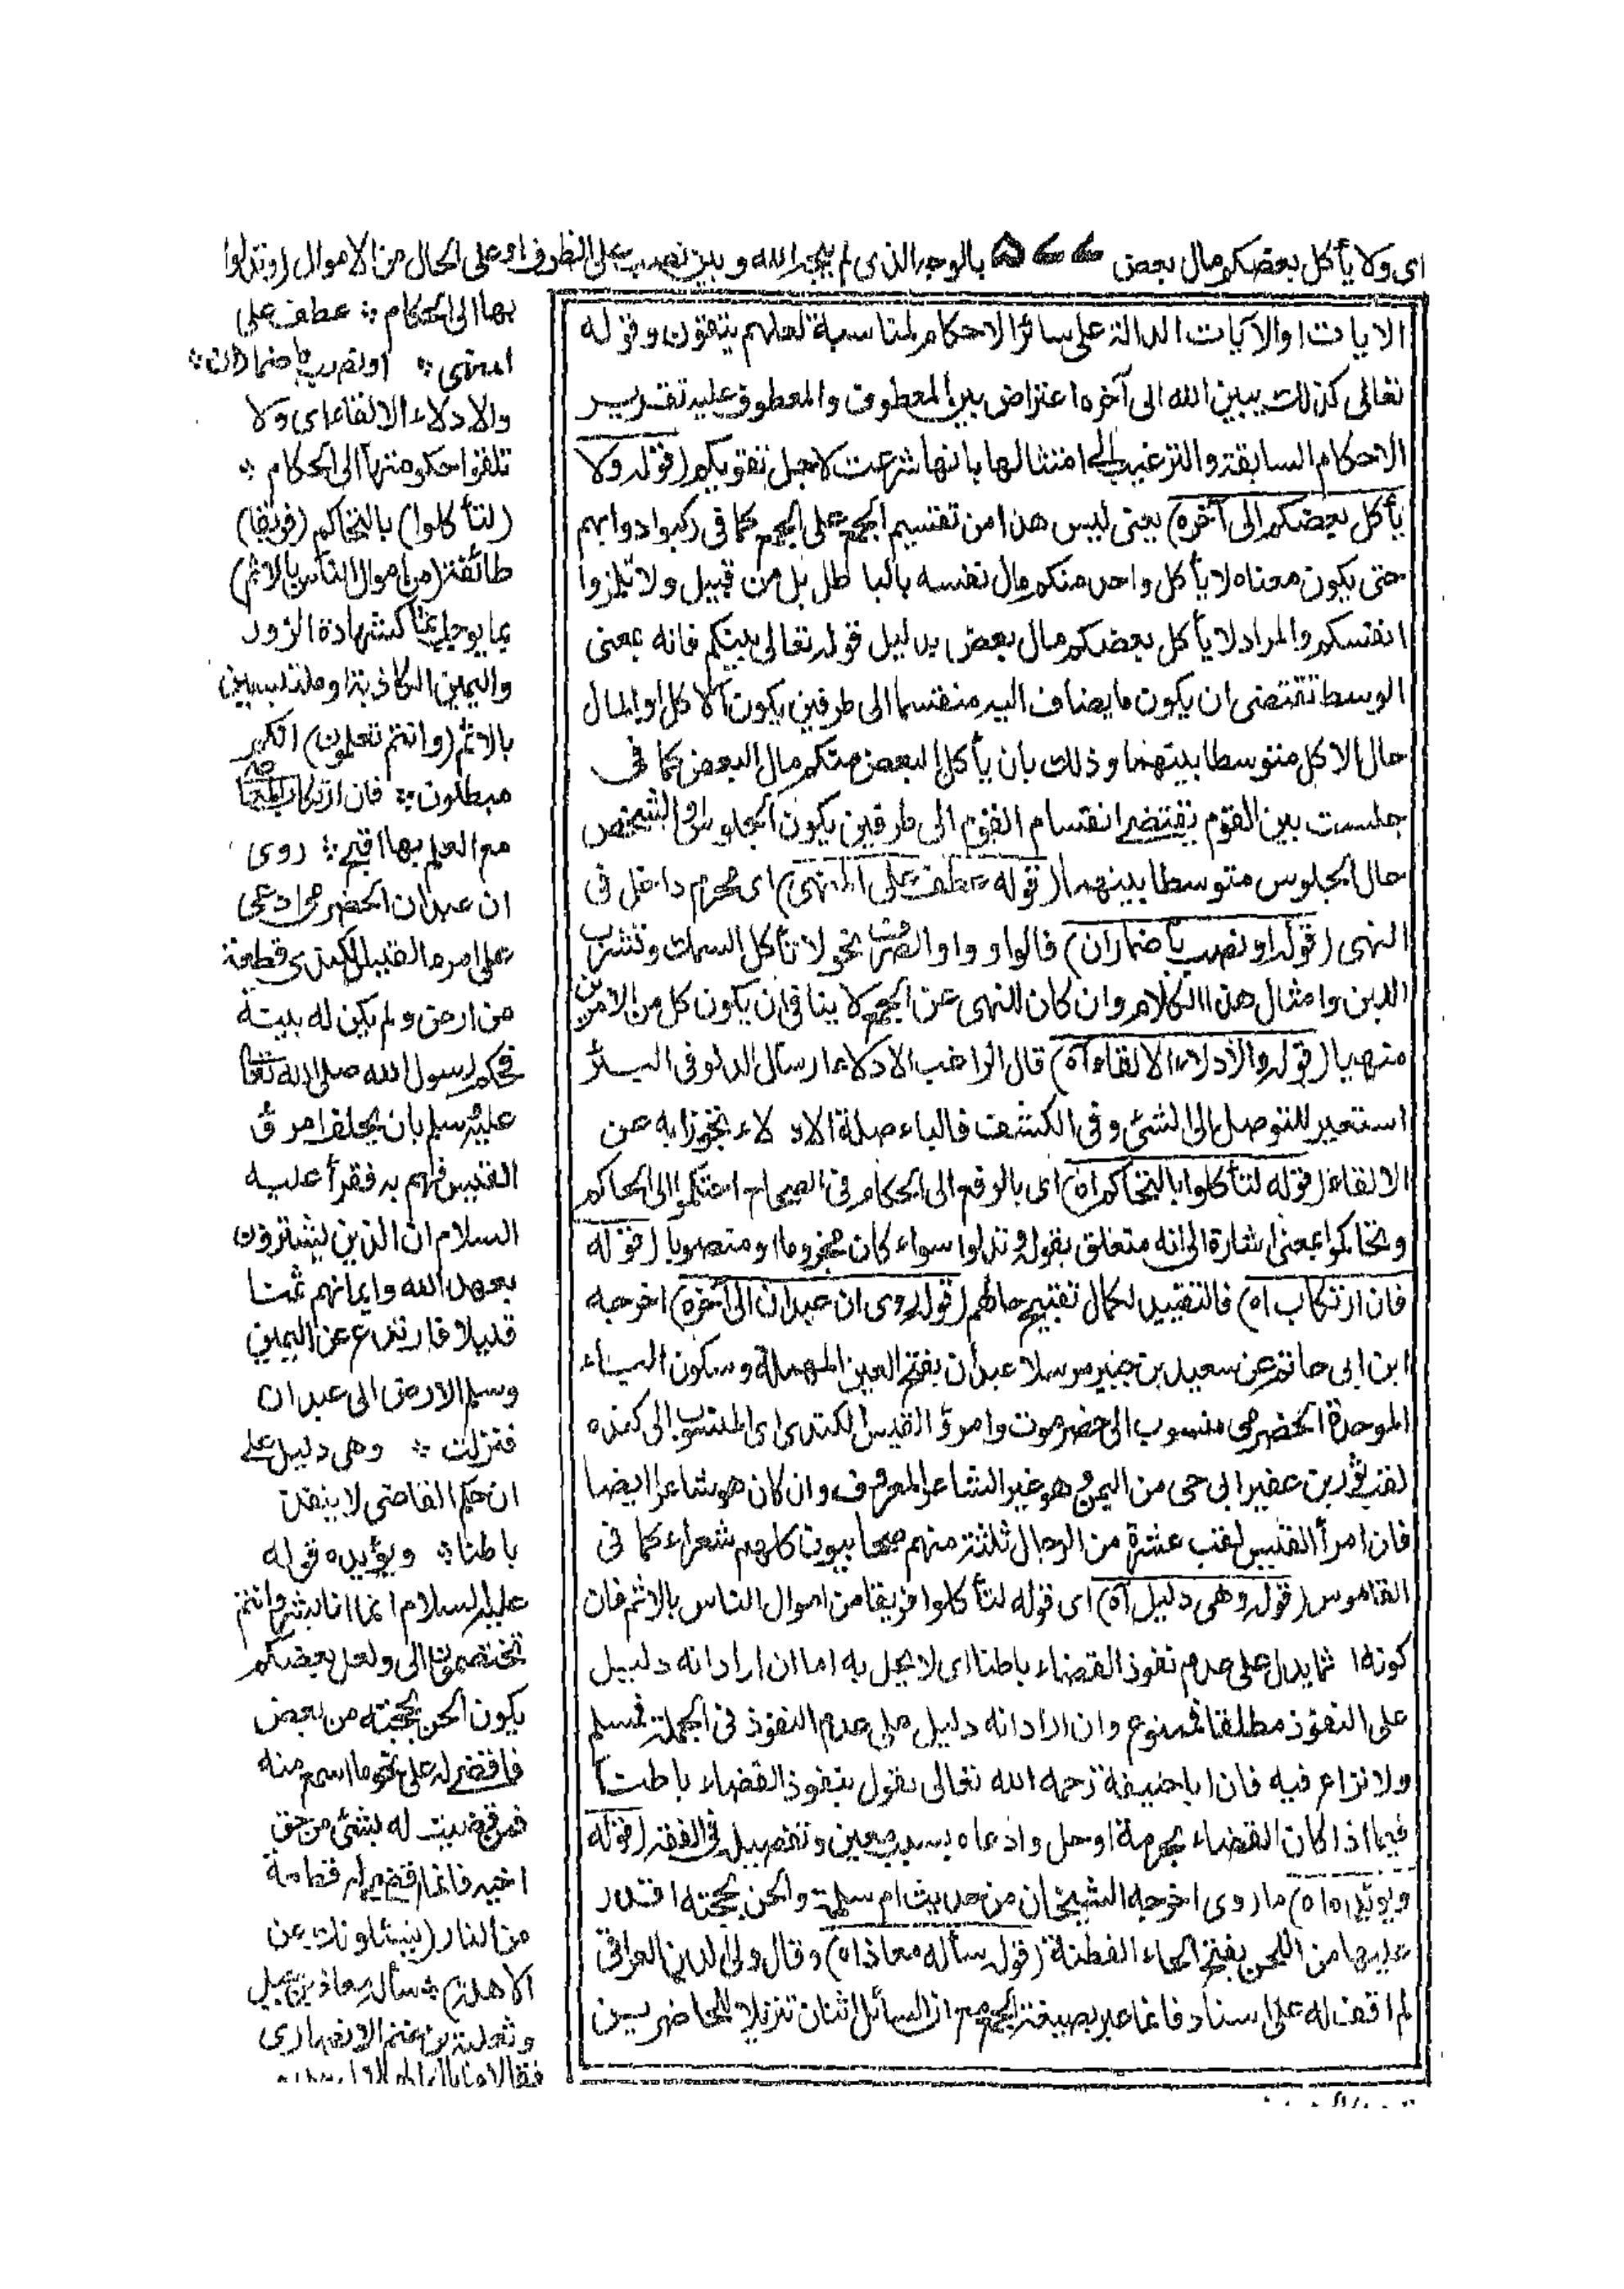 اى ولا يأكل بعضكم مال بعض ۵۷۷ بالوجه الذى لم يبحه الله وبين نصب على الظرف او على الحال من الاموال (وتدلوا
بها الى الحكام ⁘ عطف على
المنهى ⁘ او نصب باضماران ⁘
والادلاء الالقاء اى ولا
تلقوا حكومتها الى الحكام ⁘
(لتأكلوا) بالتحاكم (فريقا)
طائفة (من اموال الناس بالاثم)
بما يوجب اثما كشهادة الزور
واليمين الكاذبة او ملتبسين
بالاثم (وانتم تعلمون) انكم
مبطلون ⁘ فان ارتكاب المعصية
مع العلم بها اقبح ⁘ روى
ان عبدان الحضرمى ادعى
على امرء القيس الكندى قطعة
من ارض ولم يكن له بينة
فحكم رسول الله صلى الله تعا
عليه وسلم بان يحلف امرؤ
القيس فهم به فقرأ عليه
السلام ان الذين يشترون
بعهد الله وايمانهم ثمنا
قليلا فارتدع عن اليمين
وسلم الارض الى عبدان
فنزلت ⁘ وهى دليل على
ان حكم القاضى لا ينفذ
باطنا ⁘ ويؤيده قوله
عليه السلام انما انا بشر وانتم
تختصمون الى ولعل بعضكم
يكون الحن بحجته من بعض
فاقضى له على نحو ما اسمع منه
فمن قضيت له بشئ من حق
اخيه فانما اقضى له قطعة
من النار (يسئلونك عن
الاهلة) ⁘ سأله معاذ بن جبل
وثعلبة بن غنم الانصارى
فقالا ما بال الهلال
الايات او الآيات الدالة على سائر الاحكام لمناسبة لعلهم يتقون وقوله
تعالى كذلك يبين الله الى آخره اعتراض بين المعطوف والمعطوف عليه تقرير
الاحكام السابقة والترغيب الى امتثالها بانها شرعت لاجل تقويكم (قوله ولا
يأكل بعضكم الى آخره) يعنى ليس هذا من تقسيم الجمع على الجمع كما فى ركبوا دوابهم
حتى يكون معناه لا يأكل واحد منكم مال نفسه بالباطل بل من قبيل ولا تلمزوا
انفسكم والمراد لا يأكل بعضكم مال بعض بدليل قوله تعالى بينكم فانه بمعنى
الوسط تقتضى ان يكون ما يضاف اليه منقسما الى طرفين يكون الاكل او المال
حال الاكل متوسطا بينهما وذلك بان يأكل البعض منكم مال البعض كما فى
جلست بين القوم يقتضى انقسام القوم الى طرفين يكون الجلوس او الشخص
حال الجلوس متوسطا بينهما (قوله عطف على المنهى) اى مجزوم داخل فى
النهى (قوله او نصب باضماران) فالواو واو الصرف نحو لا تأكل السمك وتشرب
اللبن وامثال هذا الكلام وان كان للنهى عن الجمع لا ينافى ان يكون كل من الامرين
منهيا (قوله والادلاء الالقاء آه) قال الراغب الادلاء ارسال الدلو فى البئر
استعير للتوصل الى الشئ وفى الكشف فالباء صلة الادلاء تجوزا به عن
الالقاء (قوله لتأكلوا بالتحاكم آه) اى بالرفع الى الحكام فى الصحاح احتكموا الى الحاكم
وتحاكموا بمعنى اشارة الى انه متعلق بقوله وتدلوا سواء كان مجزوما او منصوبا (قوله
فان ارتكاب آه) فالتقييد لكمال تقبيح حالهم (قوله روى ان عبدان الى آخره) اخرجه
ابن ابى حاتم عن سعيد بن جبير مرسلا عبدان بفتح العين المهملة وسكون الباء
الموحدة الحضرمى منسوب الى حضرموت وامرؤ القيس الكندى اى المنسوب الى كنده
لقب ثور بن عفير ابى حى من اليمن وهو غير الشاعر المعروف وان كان هو شاعرا ايضا
فان امرأ القيس لقب عشرة من الرجال ثلثة منهم صحابيون كلهم شعراء كما فى
القاموس (قوله وهى دليل آه) اى قوله لتأكلوا فريقا من اموال الناس بالاثم فان
كونه اثما يدل على عدم نفوذ القضاء باطنا اى لا يحل به اما ان اراد انه دليل
على النفوذ مطلقا فممنوع وان اراد انه دليل على عدم النفوذ فى الجملة فمسلم
ولا نزاع فيه فان ابا حنيفة رحمه الله تعالى يقول بنفوذ القضاء باطنا
فيما اذا كان القضاء بحرمة او حل وادعاه بسبب معين وتفصيله فى الفقه (قوله
ويؤيده آه) ما روى اخرجه الشيخان من حديث ام سلمة والحن بحجته اقدر
عليها من اللحن بفتح الحاء الفطنة (قوله سأله معاذ آه) وقال ولى الدين العراقى
لم اقف له على اسناد فانما عبر بصيغة الجمع مع ان السائل اثنان تنزيلا للحاضرين